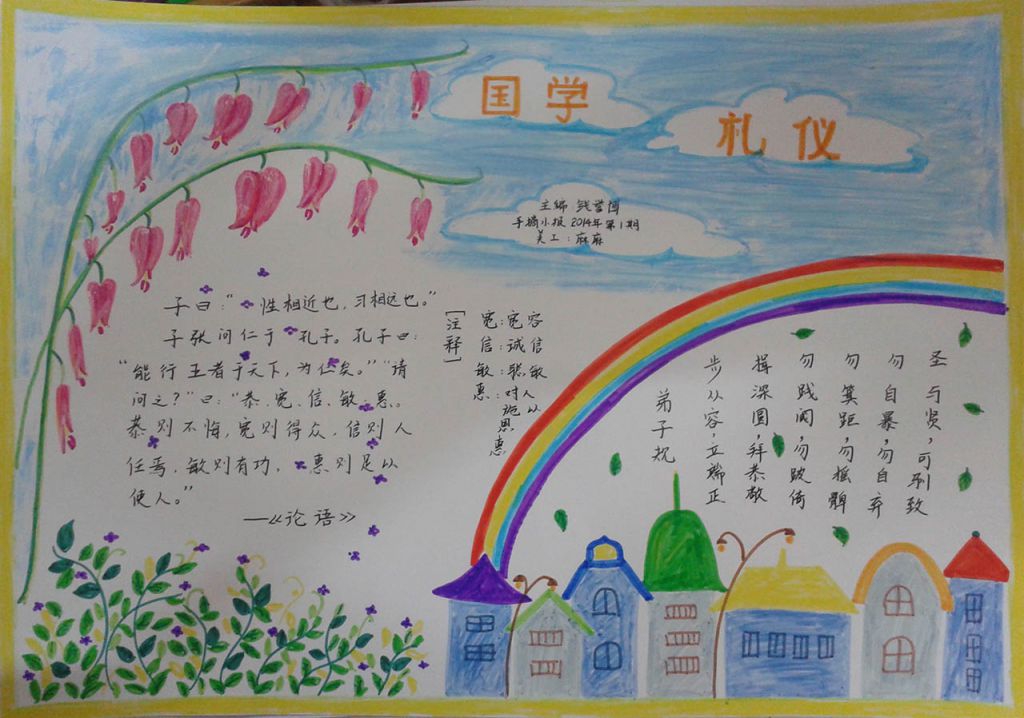 国学
礼仪
主编 钱誉博
手抄小报 2014年第1期
美工：麻麻
子曰：“性相近也，习相远也。”
子张问仁于孔子。孔子曰：
“能行王者于天下，为仁矣。”“请
问之？”曰：“恭、宽、信、敏、惠。
恭则不悔，宽则得众，信则人
任焉，敏则有功，惠则足以
使人。”
—《论语》
[注释]
宽：宽容
信：诚信
敏：聪敏
惠：对人施以恩惠
圣与贤，可驯致
勿自暴，勿自弃
勿箕距，勿摇髀
勿践阈，勿跛倚
揖深圆，拜恭敬
步从容，立端正
弟子规